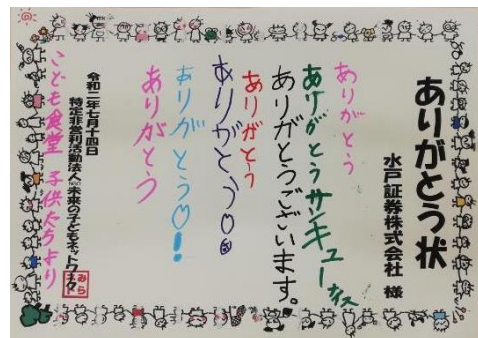 ありがとう状
水戸証券株式会社 様
ありがとう
ありがとうサンキュー
ありがとうございます。
ありがとう
ありがとう
ありがとう♡!
ありがとう
令和二年七月十四日
特定非営利活動法人 未来の子どもネットワーク
こども食堂 子供たちより